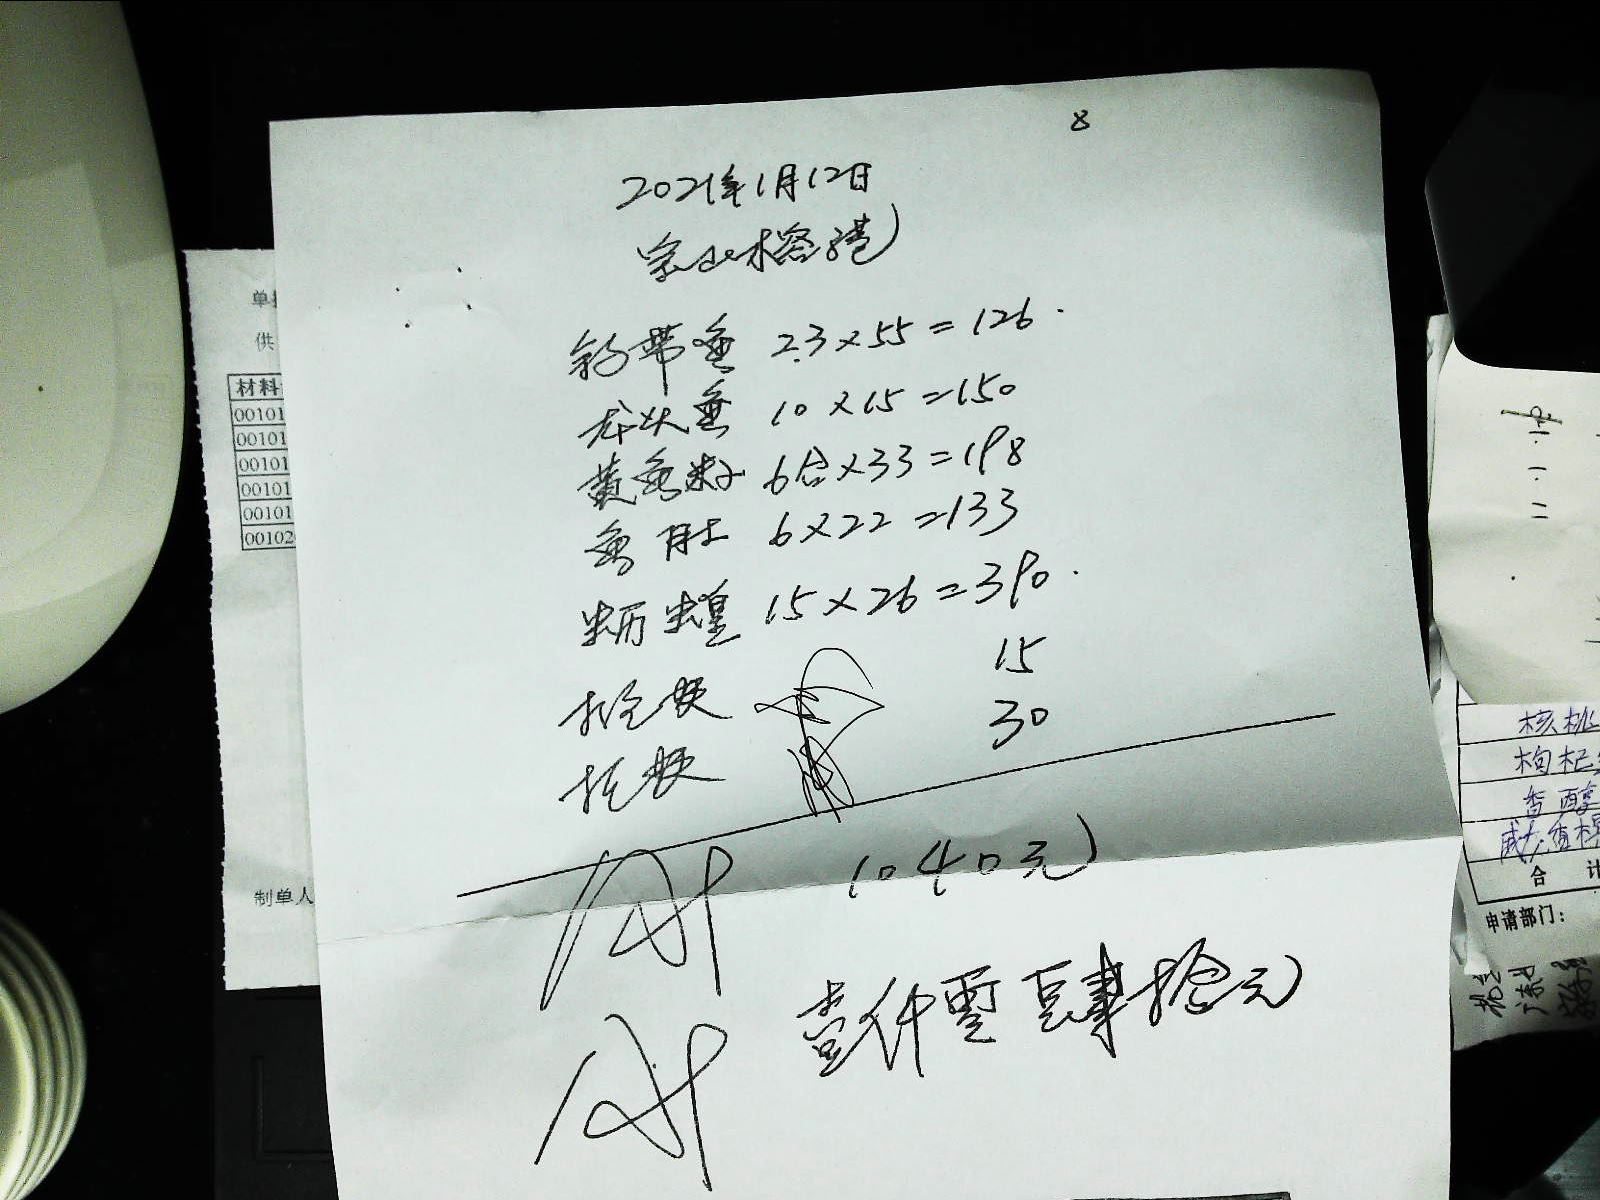 8
2021年1月12日
钓带鱼 2.3×55=126.
龙头鱼 10×15=150
黄鱼籽 6合×33=198
鱼肚 6×22=133
蛎蝗 15×26=390.
15
30
1040元
壹仟零肆拾元
单
供
材料
00101
00101
00101
00101
00101
00102
制单人
11.1.
核桃
枸杞
香醇
合 计
申请部门: